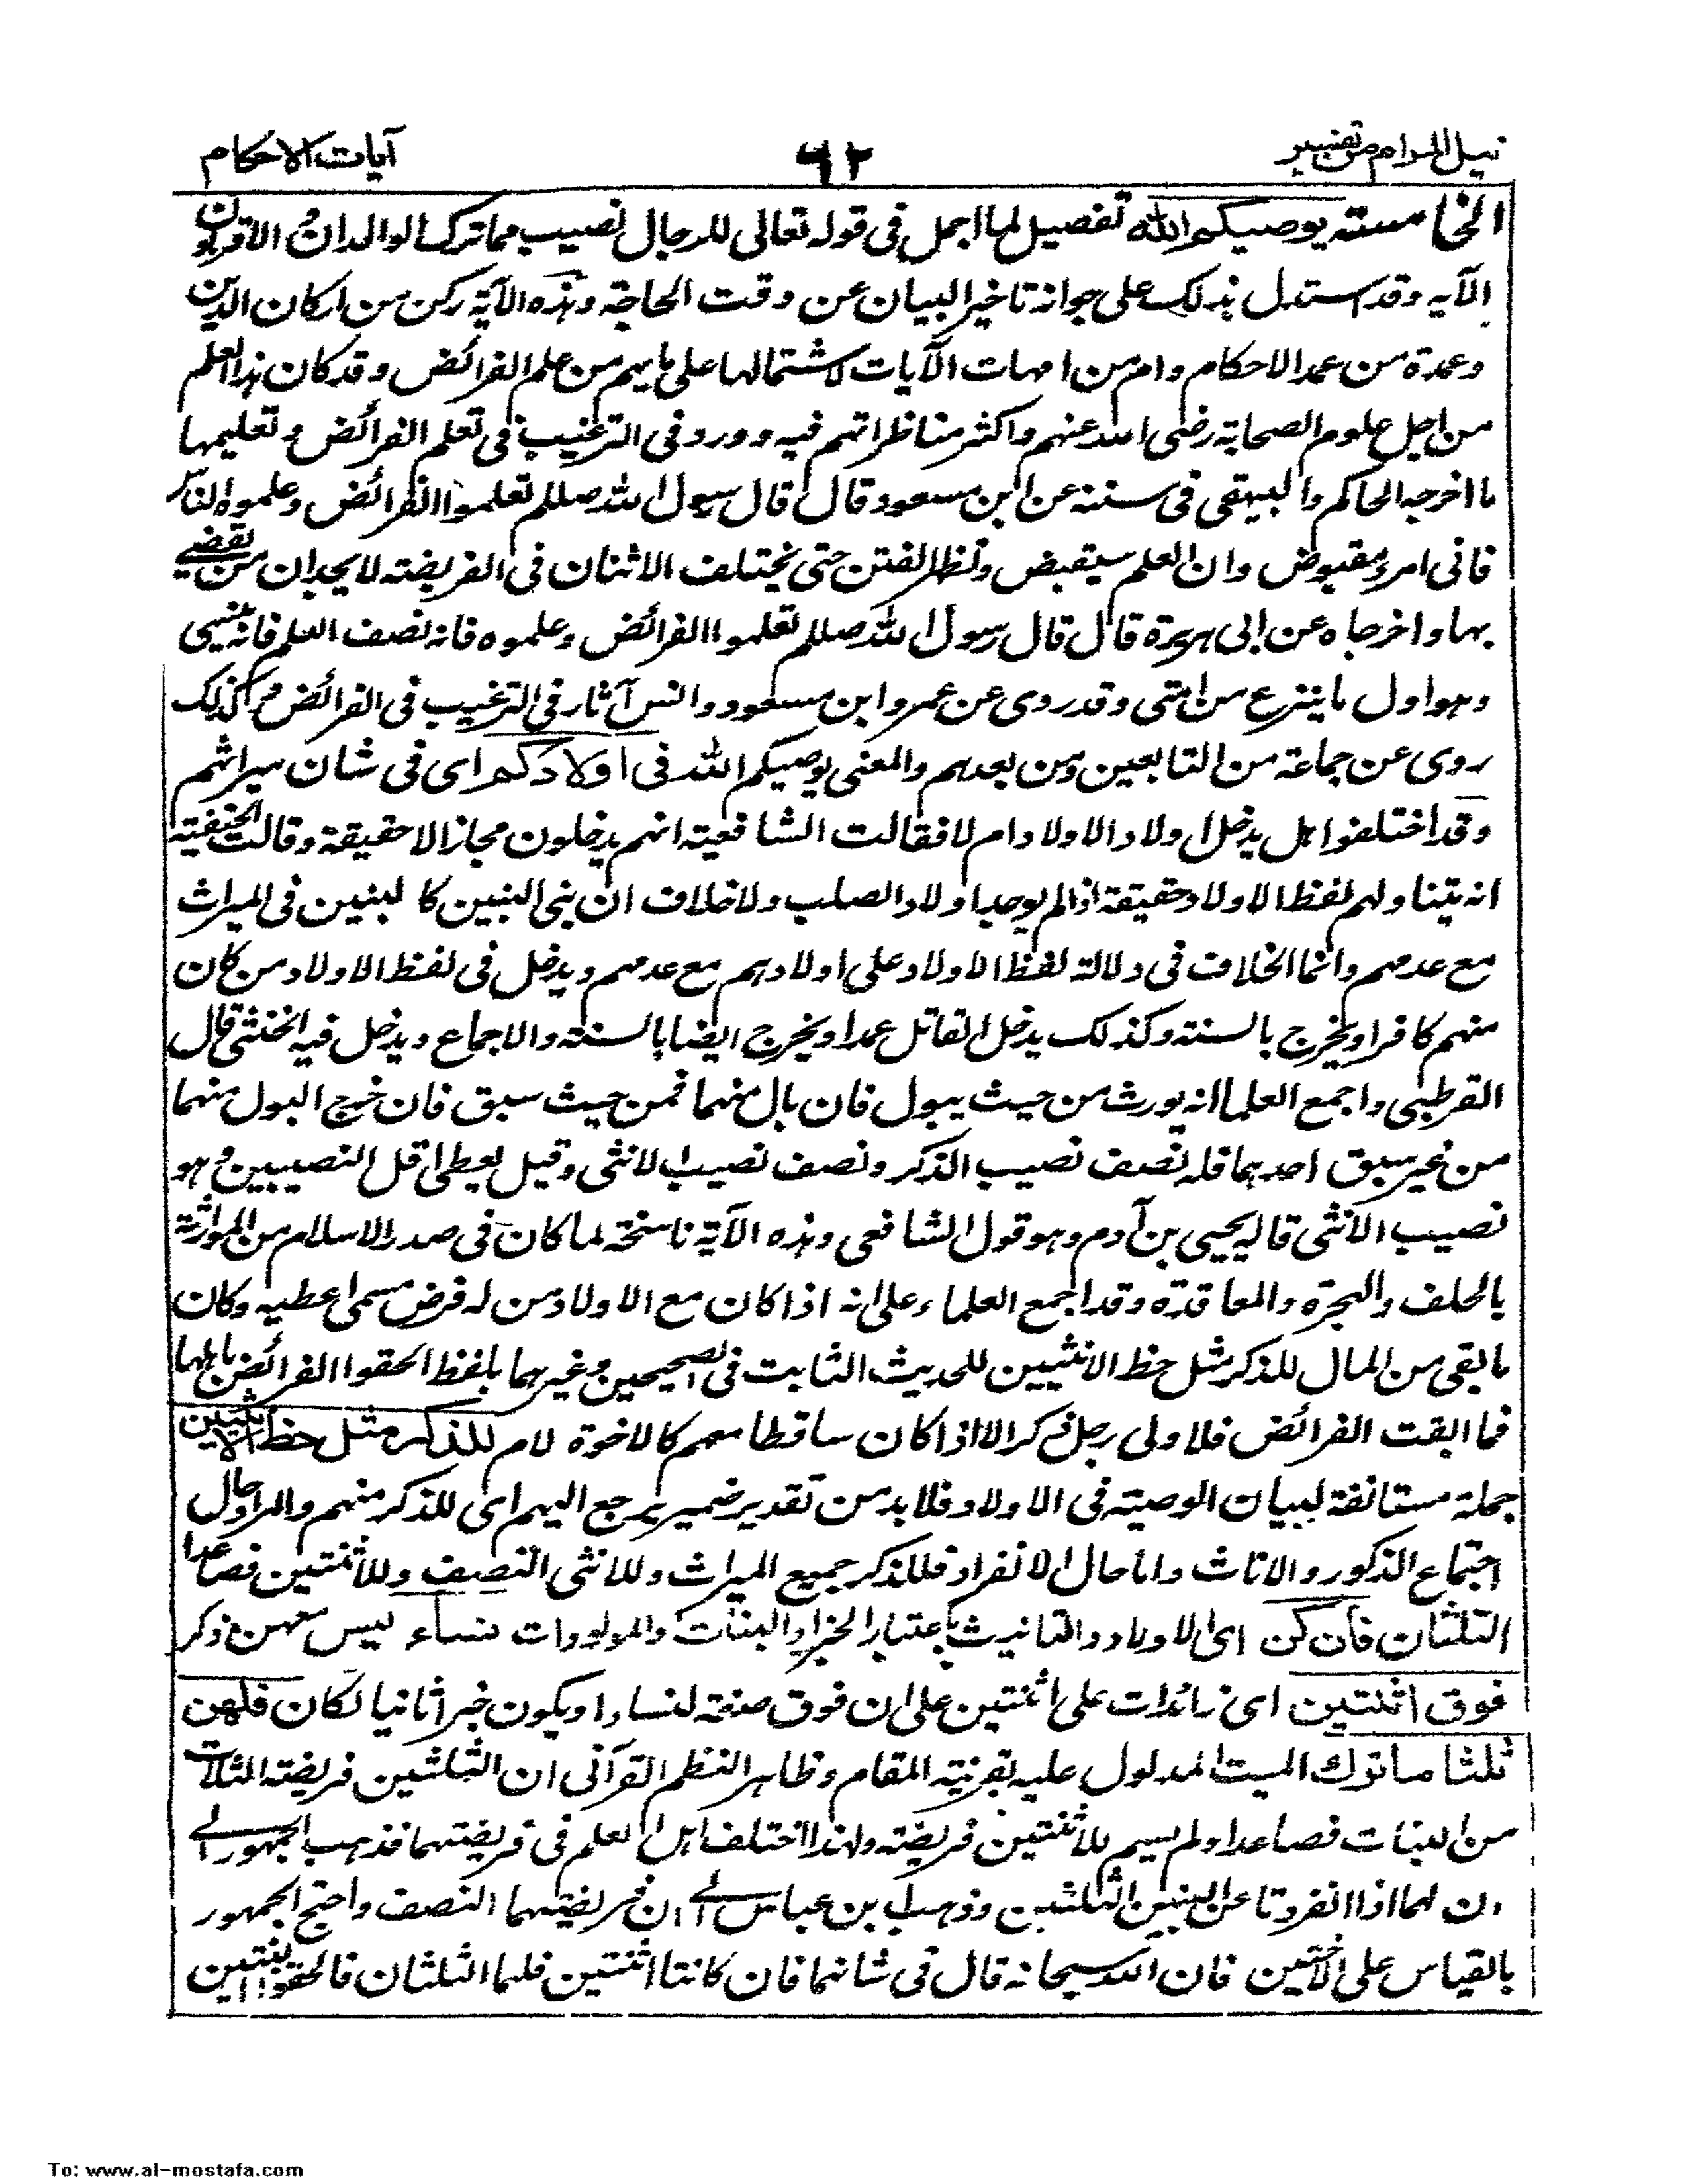 نيل المرام من تفسير ٦٢ آيات الاحكام
الخامسة يوصيكم الله تفصيل لما اجمل فى قوله تعالى للرجال نصيب مما ترك الوالدان و الاقربون
الآيه وقد استدل بذلك على جواز تاخير البيان عن وقت الحاجة وهذه الآية ركن من اركان الدين
وعمدة من عمد الاحكام وام من امهات الآيات لاشتمالها على ما يهم من علم الفرائض وقد كان هذا العلم
من اجل علوم الصحابة رضى الله عنهم واكثر مناظراتهم فيه وورد فى الترغيب فى تعلم الفرائض وتعليمها
ما اخرجه الحاكم والبيهقى فى سننه عن ابن مسعود قال قال رسول الله صللم تعلموا الفرائض وعلموه الناس
فانى امرء مقبوض وان العلم سيقبض وتظهر الفتن حتى يختلف الاثنان فى الفريضة لا يجدان من يقضى
بها واخرجاه عن ابى هريرة قال قال رسول الله صللم تعلموا الفرائض وعلموه فانه نصف العلم فانه ينسى
وهو اول ما ينزع من امتى وقد روى عن عمر وابن مسعود وانس آثار فى الترغيب فى الفرائض وكذلك
روى عن جماعة من التابعين ومن بعدهم والمعنى يوصيكم الله فى اولادكم اى فى شان ميراثهم
وقد اختلفوا هل يدخل اولاد الاولاد ام لا فقالت الشافعية انهم يدخلون مجازا لا حقيقة وقالت الحنفية
انه يتناولهم لفظ الاولاد حقيقة اذا لم يوجد اولاد الصلب ولا خلاف ان بنى البنين كالبنين فى الميراث
مع عدمهم وانما الخلاف فى دلالة لفظ الاولاد على اولادهم مع عدمهم ويدخل فى لفظ الاولاد من كان
منهم كافرا ويخرج بالسنة وكذلك يدخل القاتل عمدا ويخرج ايضا بالسنة والاجماع ويدخل فيه الخنثى قال
القرطبى واجمع العلما انه يورث من حيث يبول فان بال منهما فمن حيث سبق فان خرج البول منهما
من غير سبق احدهما فله نصف نصيب الذكر ونصف نصيب الانثى وقيل يعطى اقل النصيبين وهو
نصيب الانثى قاله يحيى بن آدم وهو قول الشافعى وهذه الآية ناسخة لما كان فى صدر الاسلام من الموارثة
بالحلف والهجرة والمعاقدة وقد اجمع العلماء على انه اذا كان مع الاولاد من له فرض مسمى اعطيه وكان
ما بقى من المال للذكر مثل حظ الانثيين للحديث الثابت فى الصحيحين وغيرهما بلفظ الحقوا الفرائض باهلها
فما ابقت الفرائض فلاولى رجل ذكر الا اذا كان ساقطا معهم كالاخوة لام للذكر مثل حظ الانثيين
جملة مستانفة لبيان الوصية فى الاولاد فلا بد من تقدير ضمير يرجع اليهم اى للذكر منهم والمراد حال
اجتماع الذكور والاناث واما حال الانفراد فللذكر جميع الميراث وللانثى النصف وللاثنتين فصاعدا
الثلثان فان كن اى الاولاد والتانيث باعتبار الخبر او البنات والمولودات نساء ليس معهن ذكر
فوق اثنتين اى زائدات على اثنتين على ان فوق صفة لنساء او يكون خبرا ثانيا لكان فلهن
ثلثا ما ترك الميت المدلول عليه بقرينة المقام وظاهر النظم القرآنى ان الثلثين فريضة الثلاث
من البنات فصاعدا ولم يسم للاثنتين فريضة ولهذا اختلف اهل العلم فى فريضتهما فذهب الجمهور الى
ان لهما اذا انفردتا عن البنين الثلثين وذهب ابن عباس الى ان فريضتهما النصف واحتج الجمهور
بالقياس على الاختين فان الله سبحانه قال فى شانهما فان كانتا اثنتين فلهما الثلثان فالحقوا البنتين
To: www.al-mostafa.com